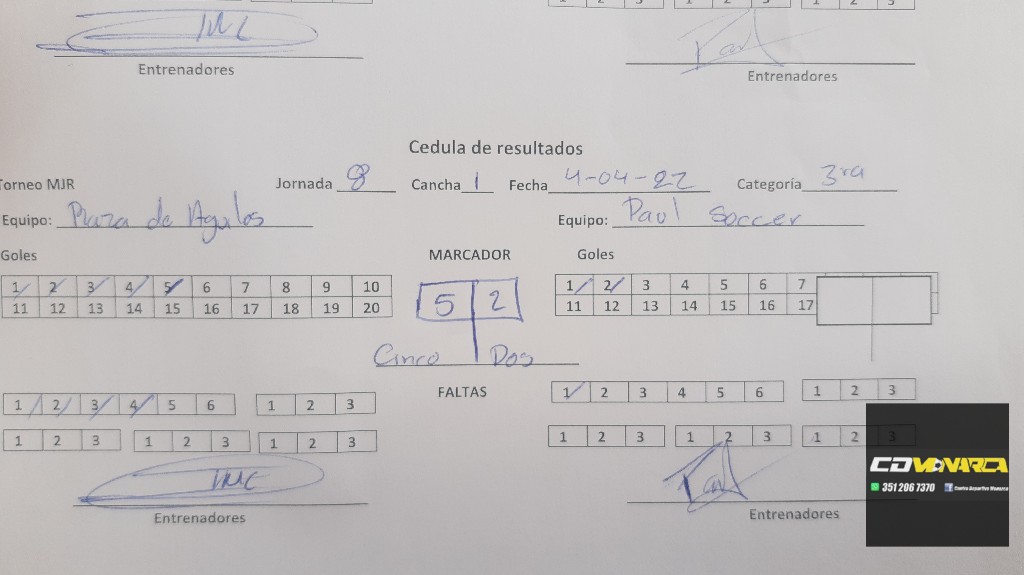 1 2 3 1 2 3 1 2 3
Entrenadores Entrenadores
Cedula de resultados
Torneo MJR Jornada 8 Cancha 1 Fecha 4-04-22 Categoría 3ra
Equipo: Plaza de Aguilas Equipo: Paul Soccer
Goles MARCADOR Goles
1 2 3 4 5 6 7 8 9 10 5 2 1 2 3 4 5 6 7
11 12 13 14 15 16 17 18 19 20 11 12 13 14 15 16 17
Cinco Dos
1 2 3 4 5 6 1 2 3 FALTAS 1 2 3 4 5 6 1 2 3
1 2 3 1 2 3 1 2 3 1 2 3 1 2 3 1 2 3
Entrenadores Entrenadores
CD MONARCA
351 206 7370 Centro Deportivo Monarca